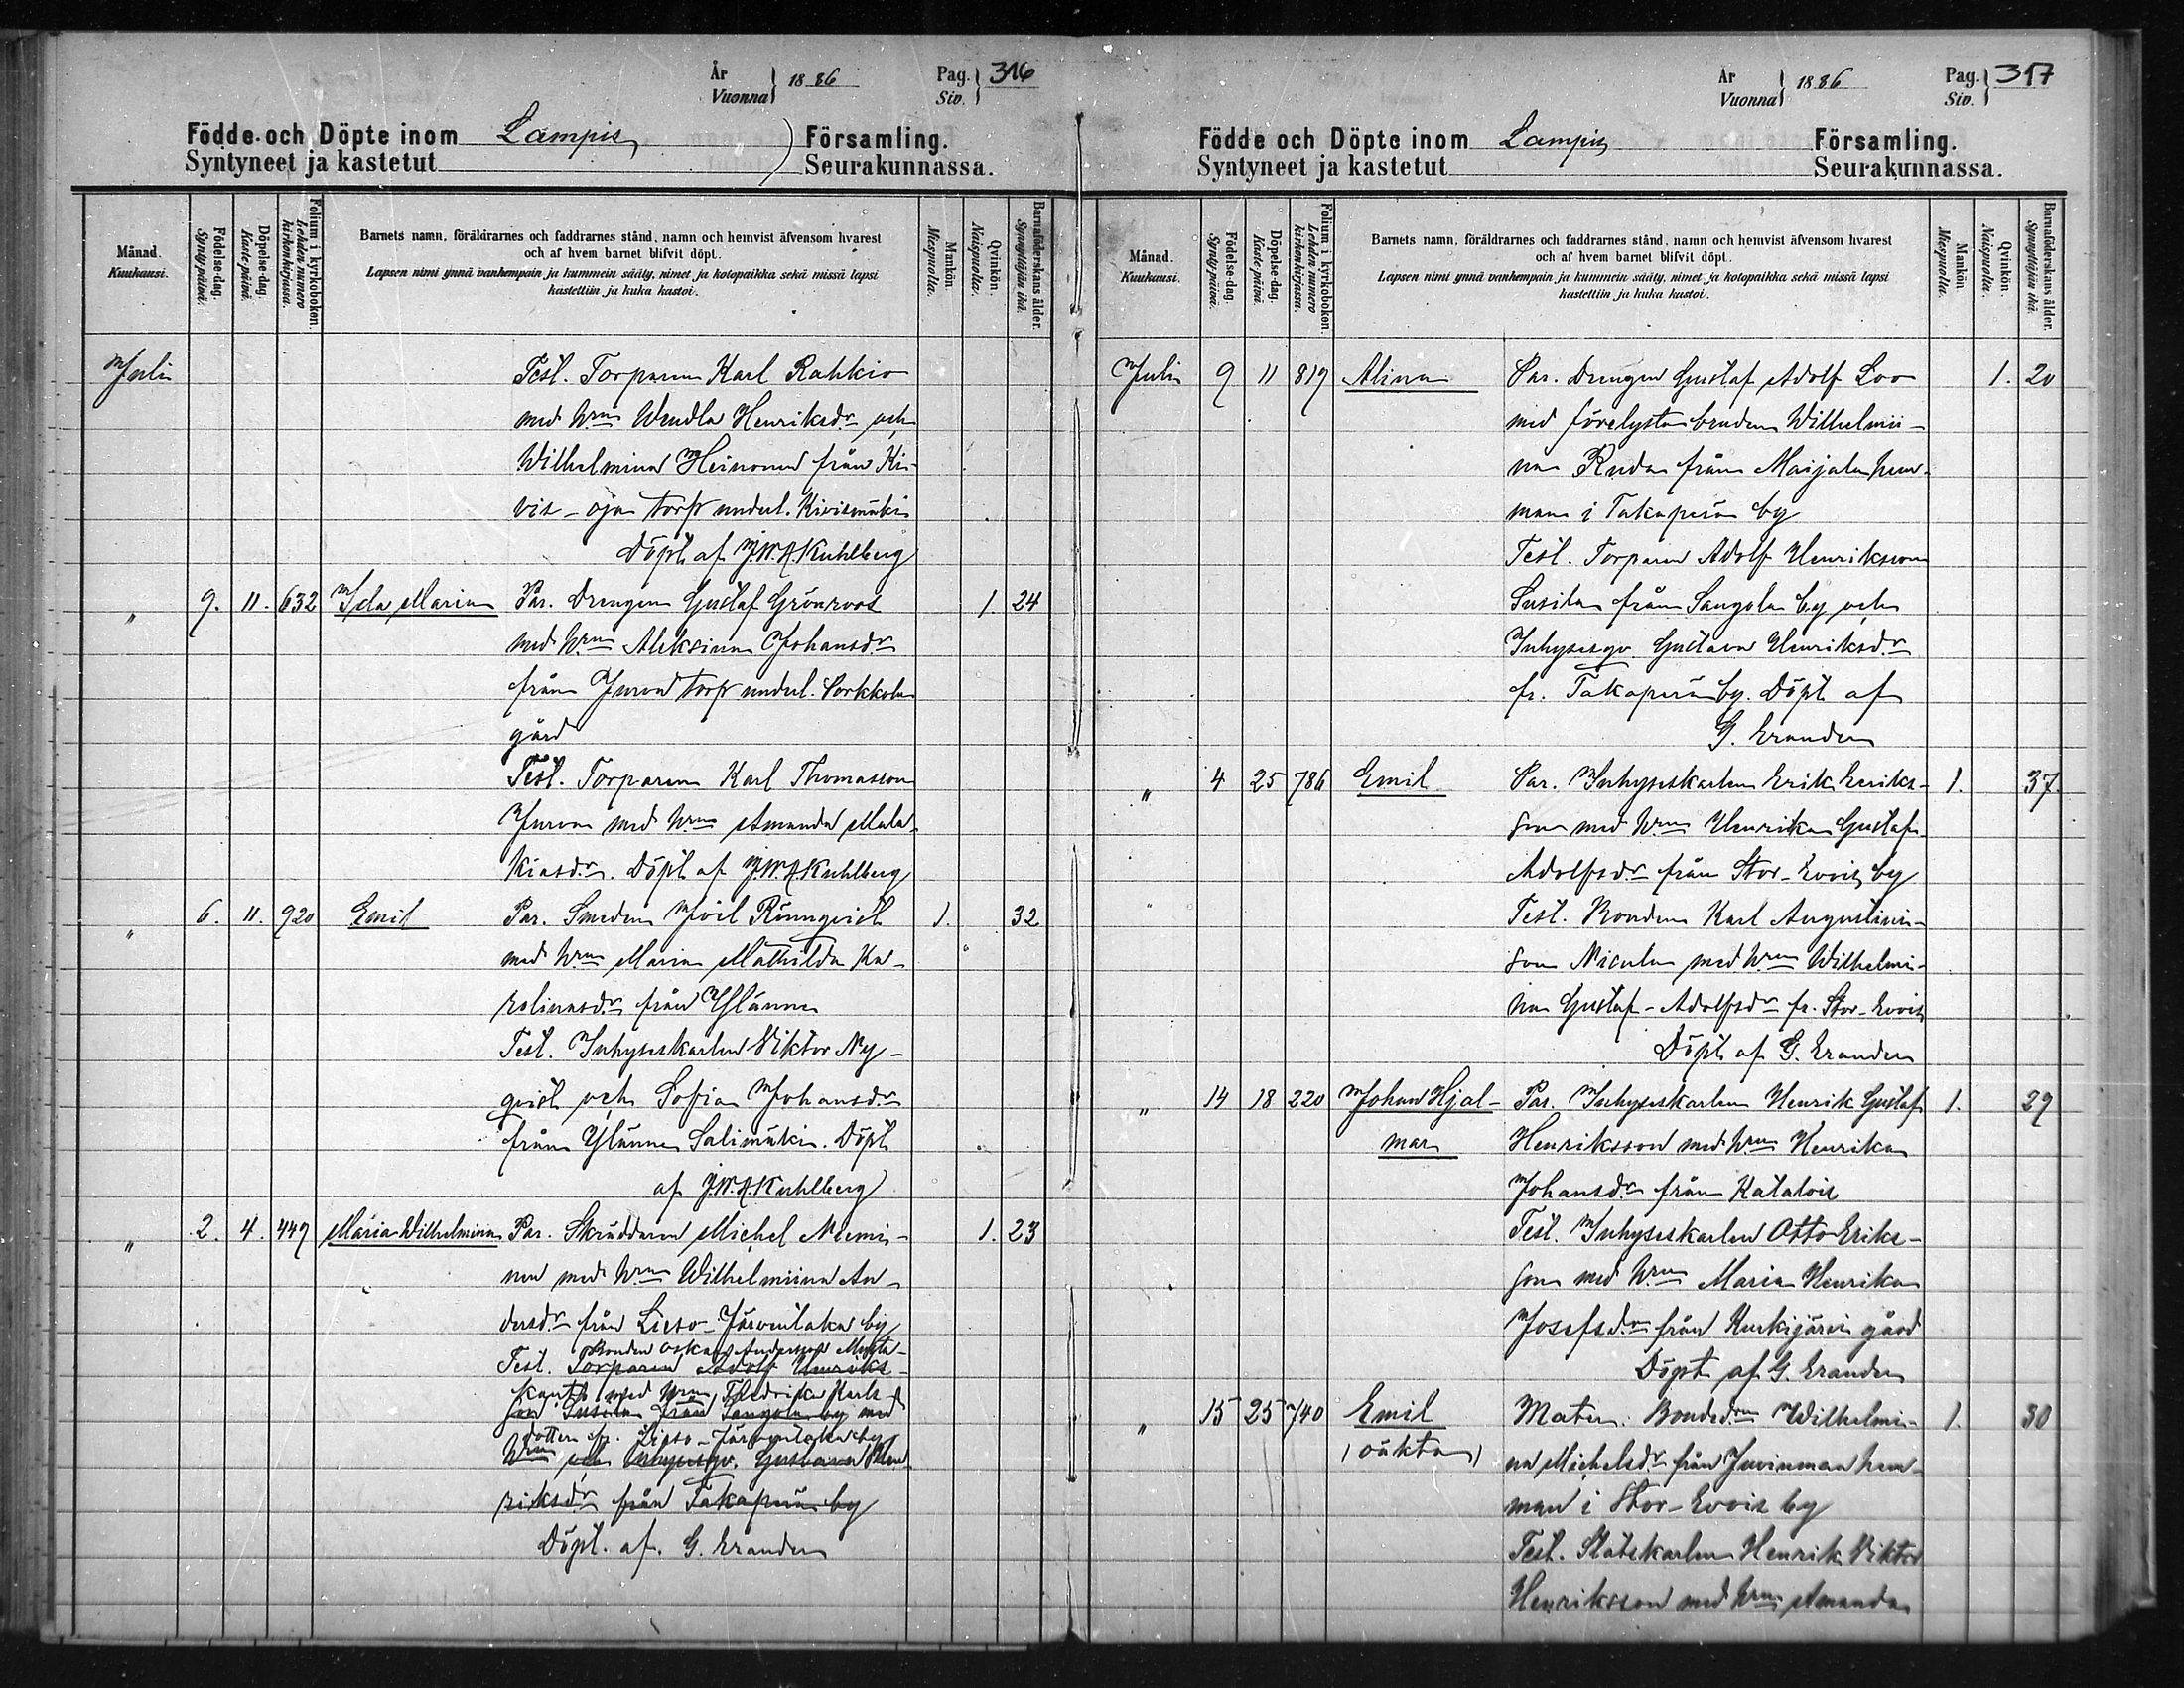 År
Vuonna 1886
Pag.
Siv. 316
Födde och Döpte inom Lampis Församling.
Syntyneet ja kastetut Seurakunnassa.
Månad.
Kuukausi.
Födelse-dag.
Synty-päivä.
Döpelse-dag.
Kaste-päivä.
Folium i kyrkoboken.
Lehden numero
kirkonkirjassa.
Barnets namn, föräldrarnes och faddrarnes stånd, namn och hemvist äfvensom hvarest
och af hvem barnet blifvit döpt.
Lapsen nimi ynnä vanhempain ja kummein sääty, nimet ja kotopaikka sekä missä lapsi
kastettiin ja kuka kastoi.
Mankön.
Miespuolia.
Qvinkön.
Naispuolia.
Barnaföderskans ålder.
Synnyttäjän ikä.
Juli Test. Torparen Karl Rahkio
med hrun Wendla Henriksdr och
Wilhelmina Heinonen från Ki-
vis-oja torp underl. Kivismäki
Döpt af J.W.A. Kuhlberg
" 9. 11. 632 Ida Maria Par. Drengen Gustaf Grönroos 1 24
med hrun Aleksina Johansdr
från Jurva torp underl. Porkkola
gård
Test. Torparen Karl Thomasson
Jurva med hrun Amanda Mala-
kiasdr. Döpt af J.W.A. Kuhlberg
" 6. 11. 920 Emil Par. Smeden Joel Rönnqvist 1. 32
med hrun Maria Mathilda Ka-
rolinasdr från Ylänne
Test. Inhyseskarlen Viktor Ny-
qvist och Sofia Johansdr
från Ylänne Salimäki. Döpt
af J.W.A. Kuhlberg
" 2. 4. 449 Maria Wilhelmina Par. Skräddaren Michel Niemi- 1. 23
nen med hrun Wilhelmiina An-
dersdr från Lieso-Järventaka by
Bonden Oskar Andersson Musta-
Test. Torparen Adolf Henriks-
kants med hrun Fredrika Karls-
son Susila från Sangola by med
dotter fr. Lieso-Järventaka by
hrun och Inhysesqv. Gustava Hen-
riksdr från Takaperä by
Döpt. af. G. Erander
År
Vuonna 1886
Pag.
Siv. 317
Födde och Döpte inom Lampis Församling.
Syntyneet ja kastetut Seurakunnassa.
Månad.
Kuukausi.
Födelse-dag.
Synty-päivä.
Döpelse-dag.
Kaste-päivä.
Folium i kyrkoboken.
Lehden numero
kirkonkirjassa.
Barnets namn, föräldrarnes och faddrarnes stånd, namn och hemvist äfvensom hvarest
och af hvem barnet blifvit döpt.
Lapsen nimi ynnä vanhempain ja kummein sääty, nimet ja kotopaikka sekä missä lapsi
kastettiin ja kuka kastoi.
Mankön.
Miespuolia.
Qvinkön.
Naispuolia.
Barnaföderskans ålder.
Synnyttäjän ikä.
Juli 9 11 819 Alina Par. Drengen Gustaf Adolf Loo 1. 20
med förelysta bruden Wilhelmii-
na Ruda från Maijala hem-
man i Takaperä by
Test. Torparen Adolf Henriksson
Susila från Sangola by och
Inhysesqv. Gustava Henriksdr
fr. Takaperä by. Döpt af
G. Erander
" 4 25 786 Emil Par. Inhyseskarlen Erik Eriks- 1. 37.
son med hrun Henrika Gustaf-
Adolfsdr från Stor-Evois by
Test. Bonden Karl Augustins-
son Nicula med hrun Wilhelmi-
na Gustaf-Adolfsdr fr. Stor-Evois
Döpt af G. Erander
" 14 18 220 Johan Hjal- Par. Inhyseskarlen Henrik Gustaf 1. 29
mar Henriksson med hrun Henrika
Johansdr från Katalois
Test. Inhyseskarlen Otto Eriks-
son med hrun Maria Henrika
Josefsdr från Kurkijärvi gård
Döpt af G. Erander
" 15 25 740 Emil Mater. Bondedrn Wilhelmi- 1. 30
(oäkta) na Michelsdr från Juvinman hem-
man i Stor-Evois by
Test. Statskarlen Henrik Viktor
Henriksson med hrun Amanda